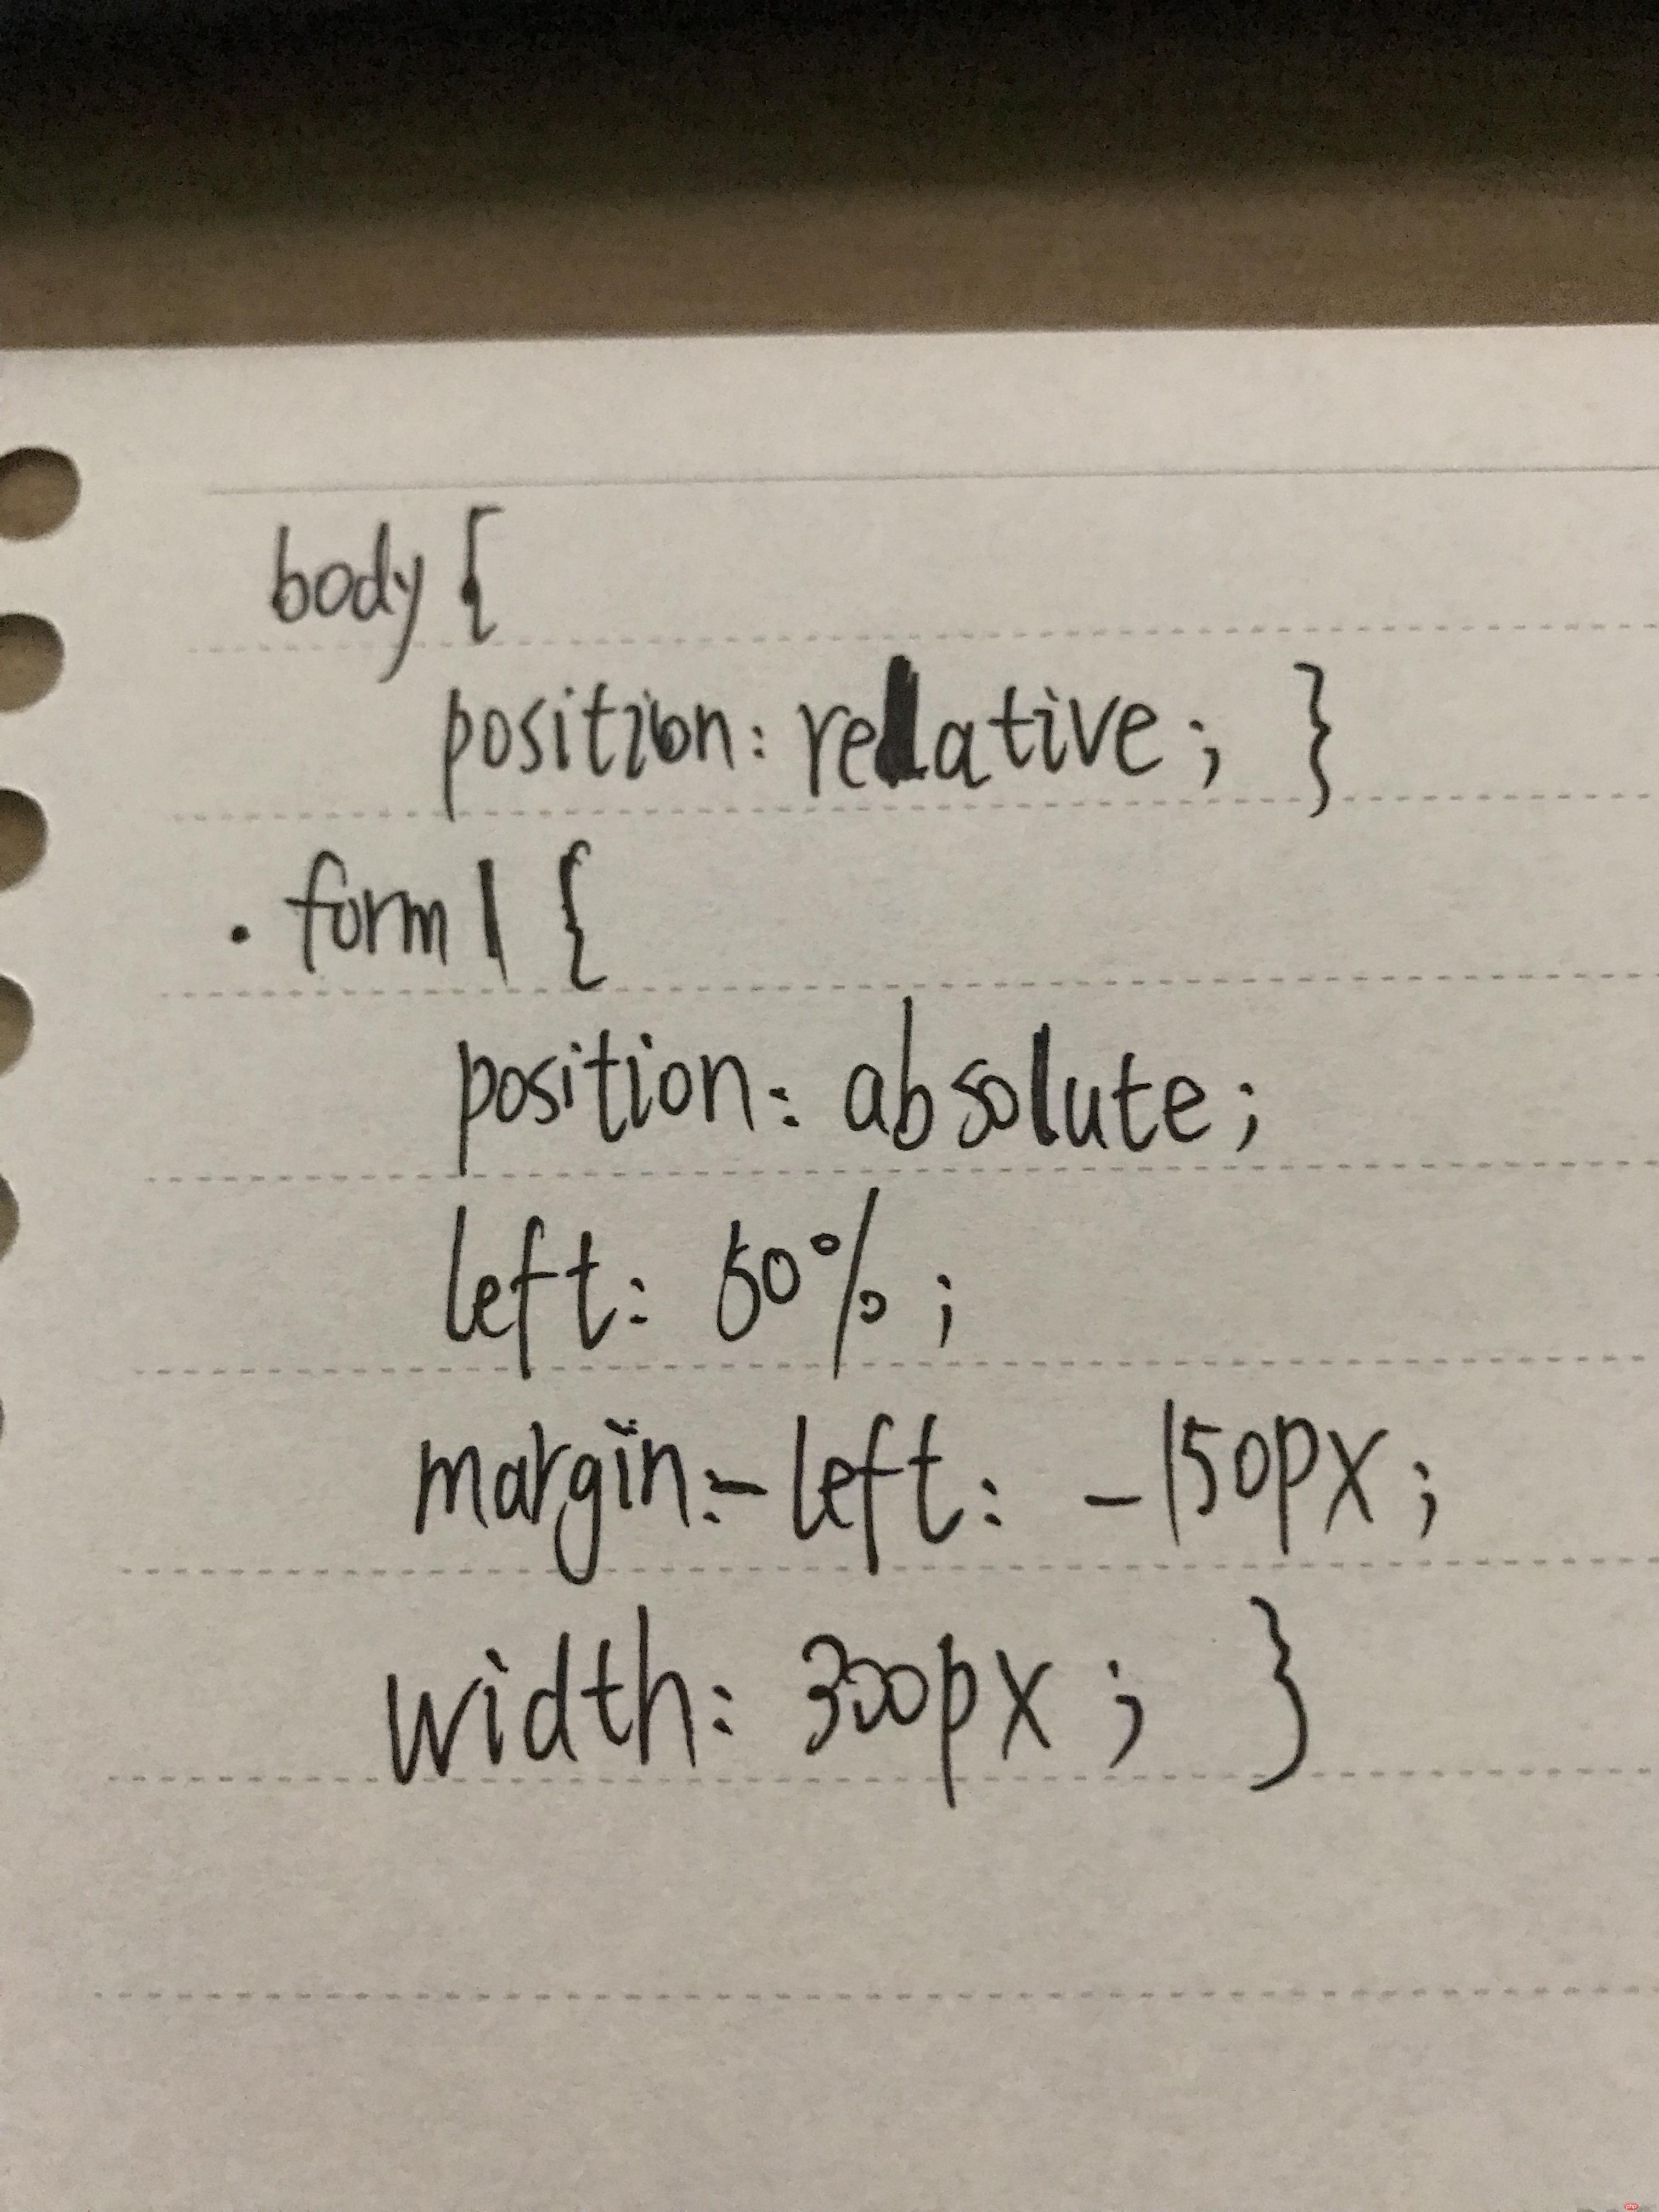 body {
position: relative; }
.form1 {
position: absolute;
left: 50%;
margin:-left: -150px;
width: 300px; }
php